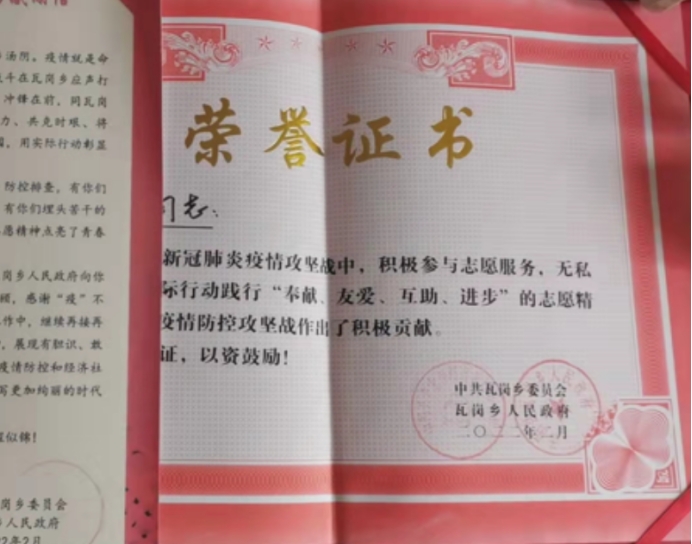 汤阴。疫情就是命
斗在瓦岗乡应声打
冲锋在前，同瓦岗
力、共克时艰、将
用实际行动彰显
防控排查，有你们
有你们埋头苦干的
愿精神点亮了青春
岗乡人民政府向你
感谢“疫”不
作中，继续再接再
展现有胆识、敢
疫情防控和经济社
写更加绚丽的时代
似锦！
岗乡委员会
人民政府
2年2月
荣誉证书
同志：
新冠肺炎疫情攻坚战中，积极参与志愿服务，无私
际行动践行“奉献、友爱、互助、进步”的志愿精
疫情防控攻坚战作出了积极贡献。
证，以资鼓励！
中共瓦岗乡委员会
瓦岗乡人民政府
二〇二二年二月